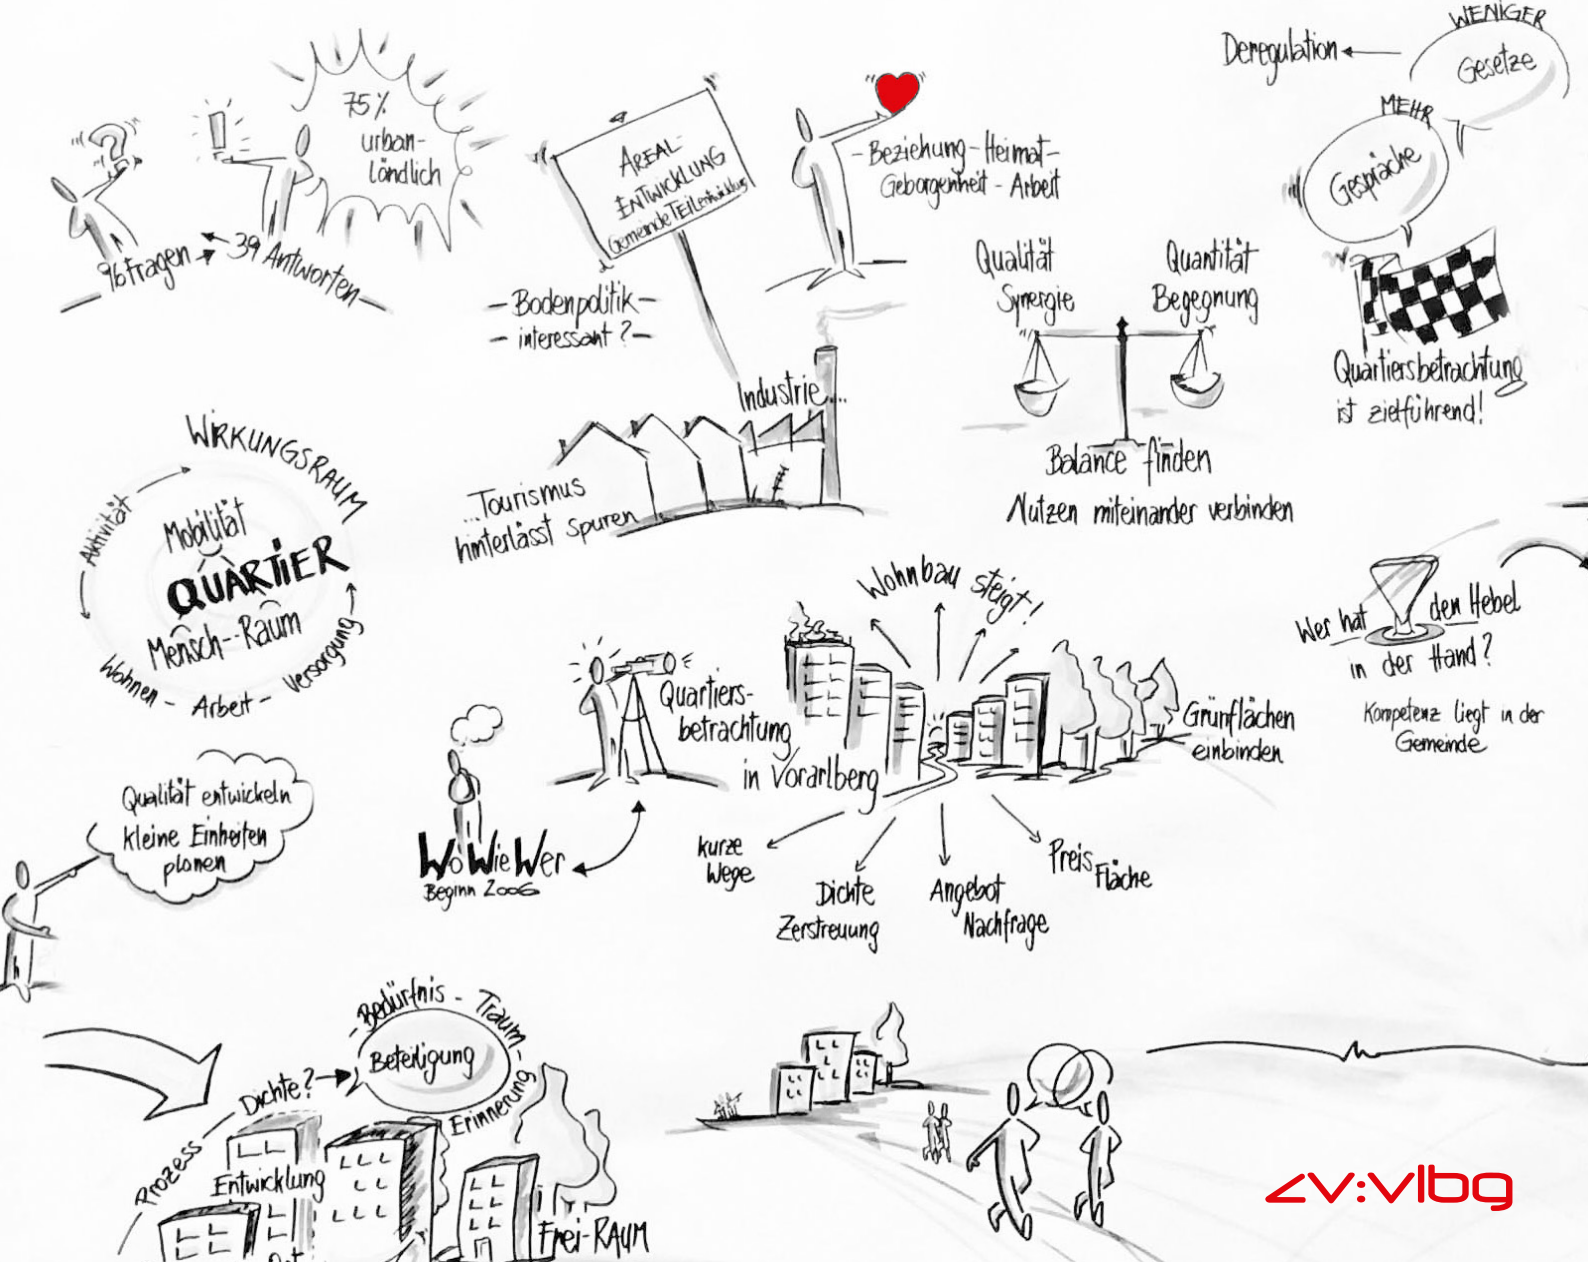 75%
urban-
ländlich
96 Fragen
39 Antworten
AREAL-
ENTWICKLUNG
GemeindeTEILentwicklung
- Bodenpolitik -
- interessant? -
- Beziehung - Heimat -
Geborgenheit - Arbeit
Deregulation
WENIGER
Gesetze
MEHR
Gespräche
Quartiersbetrachtung
ist zielführend!
Qualität
Synergie
Quantität
Begegnung
Balance finden
Nutzen miteinander verbinden
Industrie....
...Tourismus
hinterlässt Spuren
WIRKUNGSRAUM
Aktivität
Mobilität
QUARTIER
Mensch--Raum
Wohnen - Arbeit - Versorgung
Wohnbau steigt!
Quartiers-
betrachtung
in Vorarlberg
Grünflächen
einbinden
kurze
Wege
Dichte
Zerstreuung
Angebot
Nachfrage
Preis
Fläche
Wer hat den Hebel
in der Hand?
Kompetenz liegt in der
Gemeinde
Qualität entwickeln
kleine Einheiten
planen
Wo Wie Wer
Beginn 2006
- Bedürfnis - Traum -
Erinnerung
Beteiligung
Prozess
Dichte?
Entwicklung
Frei-RAUM
v:vlbg